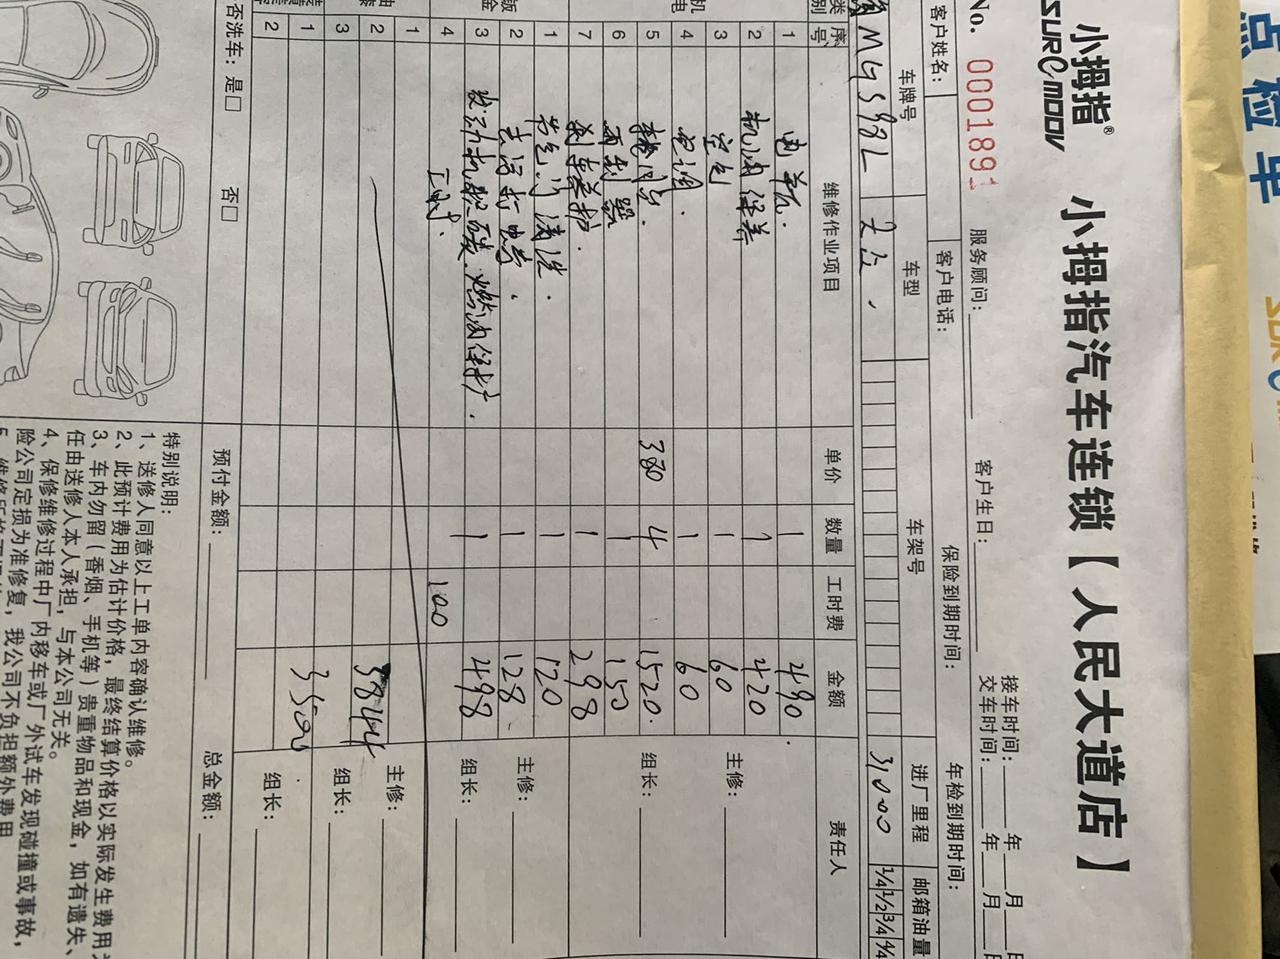 小拇指®
SURC·MOOV
小拇指汽车连锁【人民大道店】
No. 0001891
服务顾问：
客户生日：
接车时间： 年 月
交车时间： 年 月
客户姓名：
客户电话：
保险到期时间：
年检到期时间：
车牌号
车型
车架号
进厂里程
邮箱油量
MG598L
大众
3,000
1/4 1/2 3/4 4/4
序号
维修作业项目
单价
数量
工时费
金额
责任人
1 电瓶 1 490
2 机油保养 1 420
3 空气 1 60
4 空调 1 60
5 轮胎 380 4 1520
6 雨刮器 1 150
7 刹车养护 1 298
1 节气门清洗 1 120
2 去污打蜡 1 128
3 发动机 燃油保护 1 498
4 工时 100
1
2 3844
3
1 3500
2
主修：
组长：
主修：
组长：
主修：
组长：
组长：
否洗车：是□ 否□
预付金额：
总金额：
特别说明：
1、送修人同意以上工单内容确认维修。
2、此预计费用为估计价格，最终结算价格以实际发生费用为
3、车内勿留（香烟、手机等）贵重物品和现金，如有遗失、
任由送修人本人承担，与本公司无关。
4、保修维修过程中厂内移车或厂外试车发现碰撞或事故，
险公司定损为准修复，我公司不负担额外费用
点检车